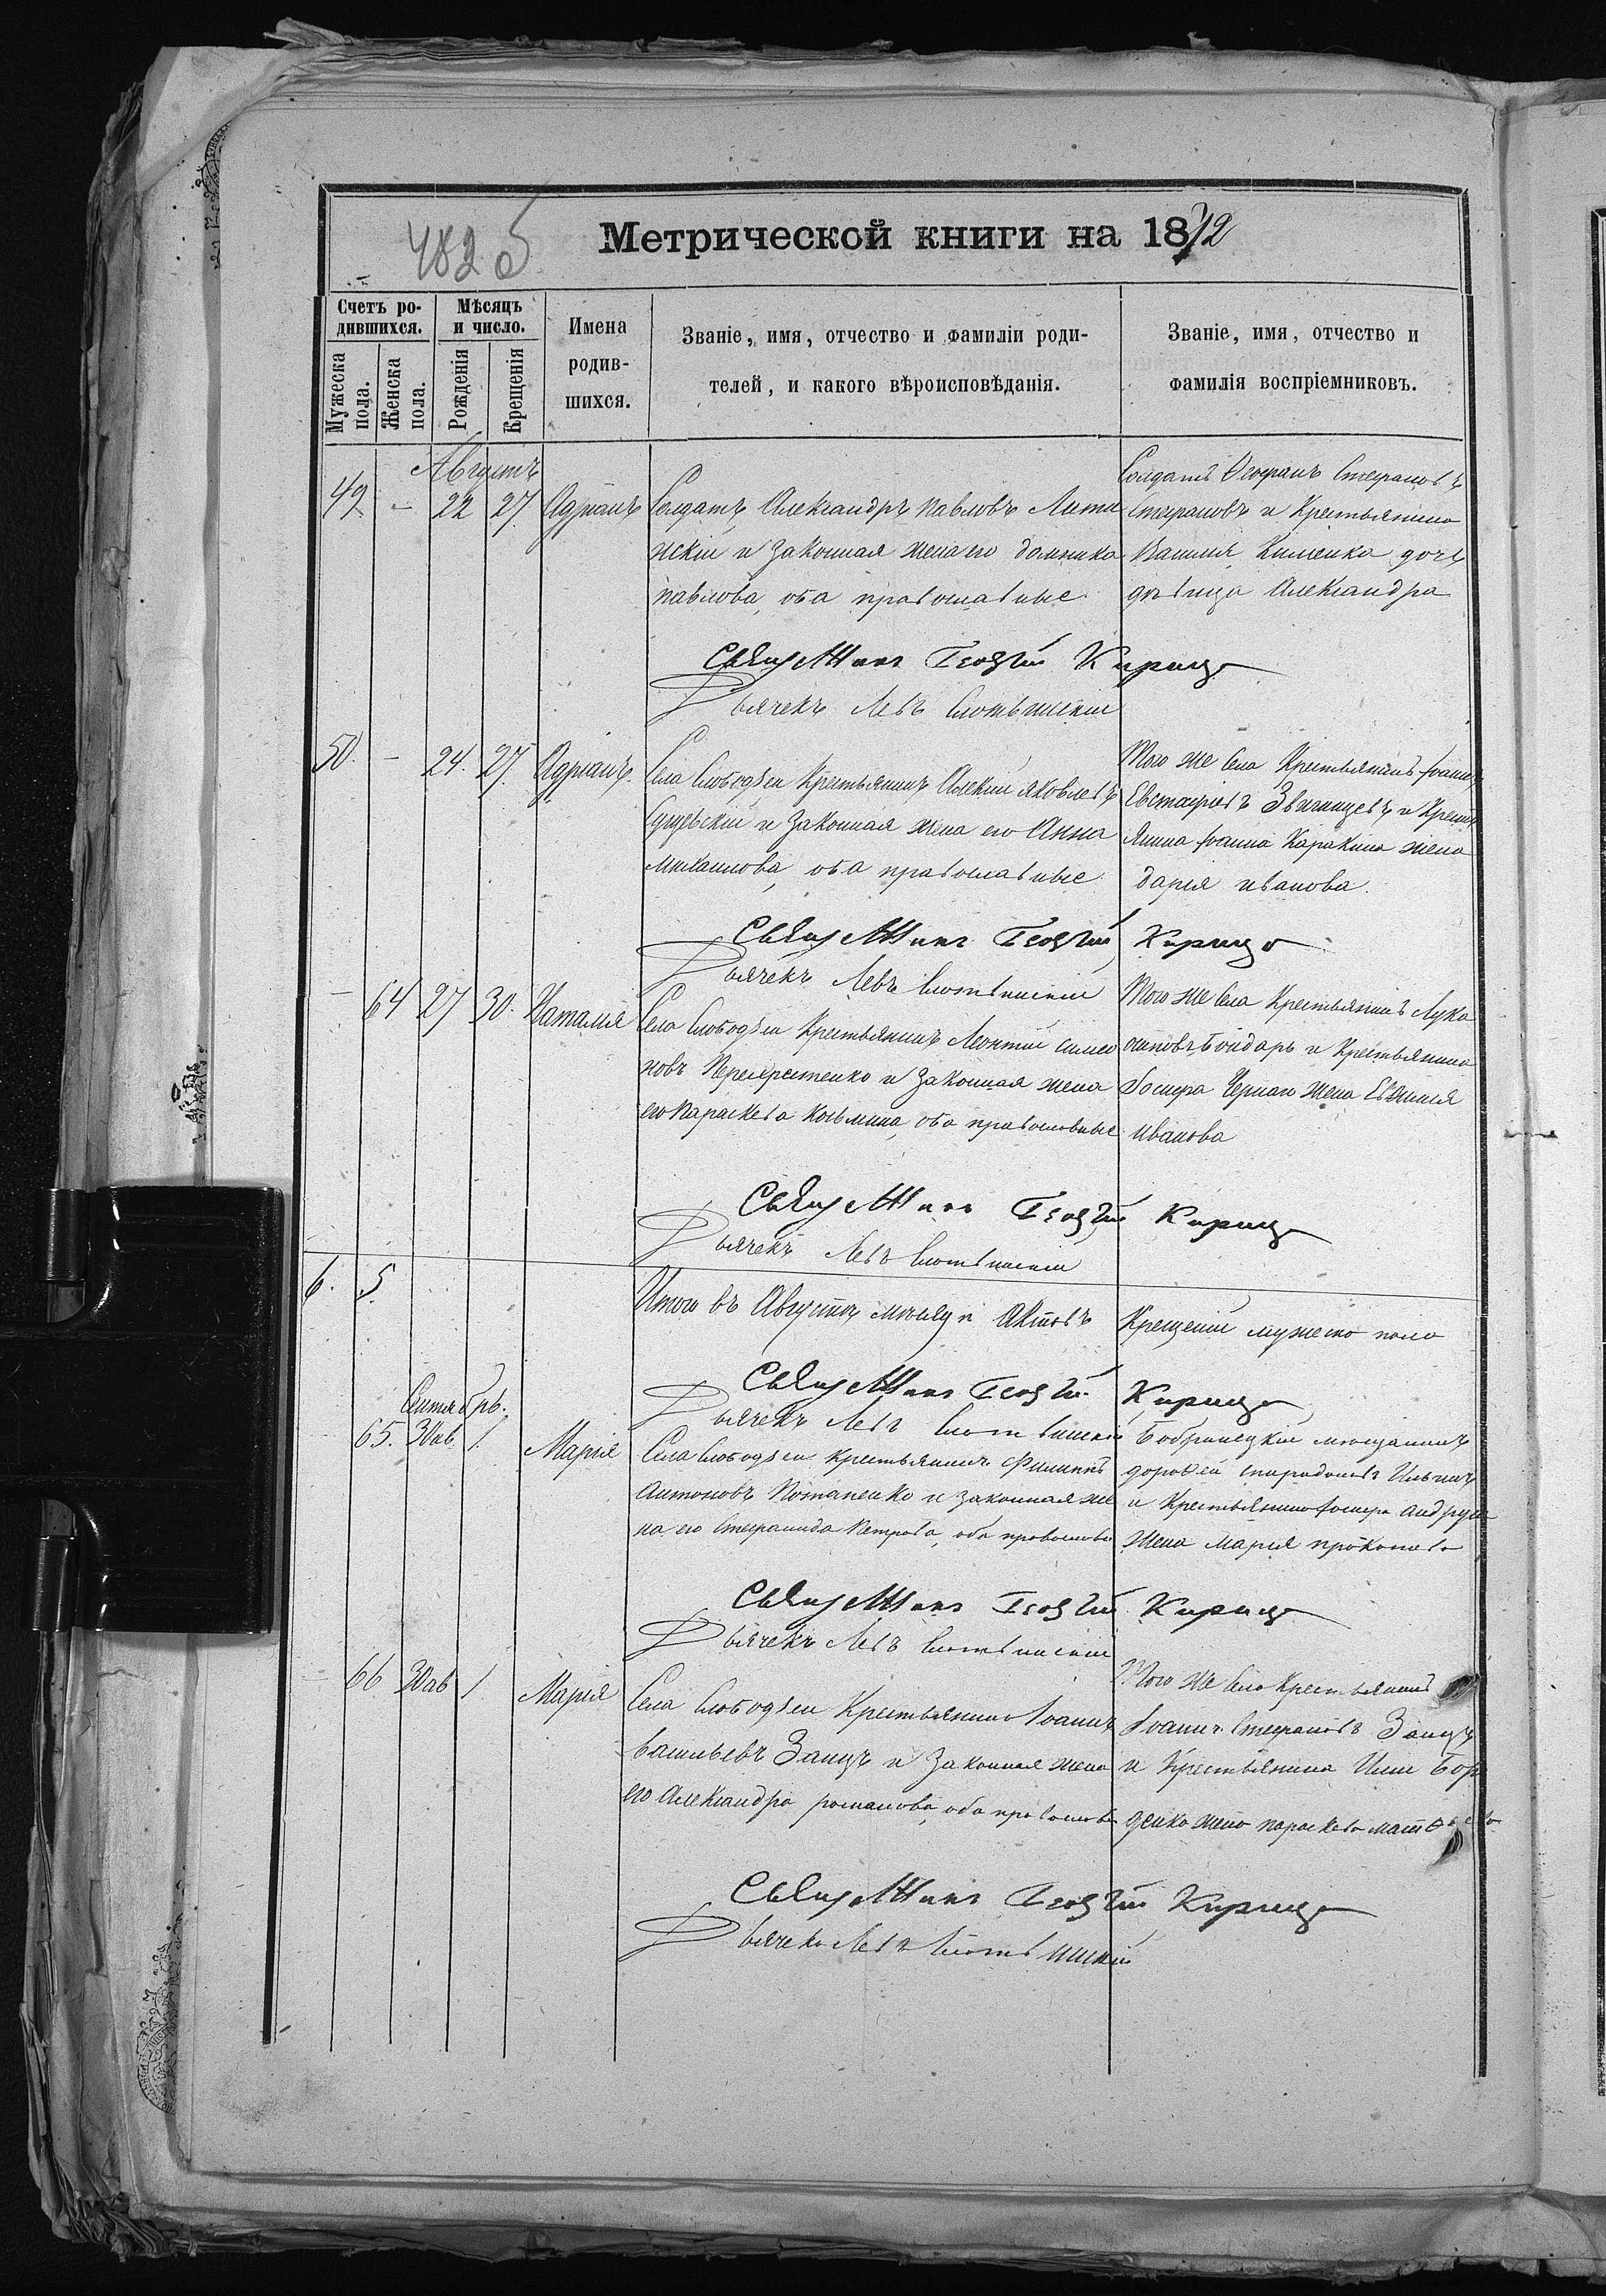 482 б
Метрической книги на 1872
Счетъ ро-
дившихся.
Мѣсяцъ
и число.
Мужеска
пола.
Женска
пола.
Рожденія
Крещенія
Имена
родив-
шихся.
Званіе, имя, отчество и фамиліи роди-
телей, и какого вѣроисповѣданія.
Званіе, имя, отчество и
фамилія воспріемниковъ.
Августъ
49 - 22 27 Адріанъ
Солдатъ Александръ павловъ
и законная жена его домника
павлова, оба православные
Солдатъ Стефановъ
Стефановъ и Крестьянина
Василия Клименка дочь
дѣвица Александра
Священникъ Георгій Кирица
Дьячекъ Левъ
50. - 24. 27. Адріанъ.
Села Слободзеи Крестьянинъ Алексій яковлевъ
и законная жена его Анна
михаилова, оба православные
Того же села Крестьянинъ Іоаннъ
Евстафіевъ и Кресть
янина Іоанна Каракина жена
дарія иванова.
Священникъ Георгій Кирица
Дьячекъ Левъ
- 64 27 30. Наталія
Села Слободзеи Крестьянинъ Леонтій симео
новъ и законная жена
его Параскева Косьмина, оба православные
Того же села Крестьянинъ Лука
осиповъ Бондарь и Крестьянина
Іосифа жена Евфимія
иванова
Священникъ Георгій Кирица
Дьячекъ Левъ
6. 5.
Итого въ Августѣ мѣсяцѣ Актовъ Крещеній мужеско пола
Священникъ Георгій Кирица
Дьячекъ Левъ
Сентябрь.
65. 30 ав 1. Марія
Села Слободзеи крестьянинъ Филиппъ
Антоновъ Потапенко и законная же
на его Стефанида Петрова, оба православн
Бобринецкій мѣщанинъ
дорофей спиридоновъ
и Крестьянина Іосифа
жена Марія прокопіева
Священникъ Георгій Кирица
Дьячекъ Левъ
- 66 30 ав 1. Марія
Села Слободзеи Крестьянинъ Іоаннъ
васильевъ Заицъ и законная жена
его Александра романова, оба православн
Того же села Крестьянинъ
Іоаннъ Стефановъ Заицъ
и Крестьянина Иліи Бор
денка жена параскева
Священникъ Георгій Кирица
Дьячекъ Левъ